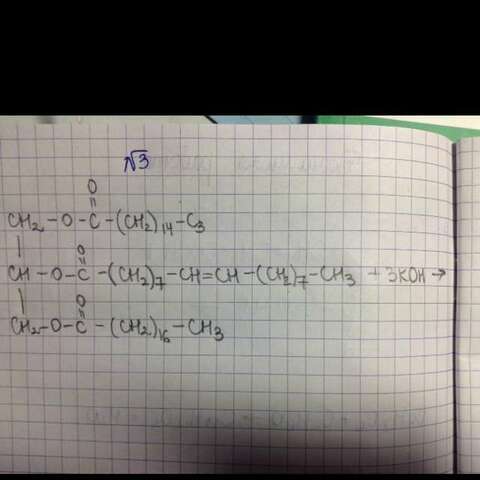 √3
O
CH₂ - O - C - (CH₂)₁₄ - C₃
O
CH - O - C - (CH₂)₇ - CH = CH - (CH₂)₇ - CH₃ + 3KOH →
O
CH₂ - O - C - (CH₂)₁₆ - CH₃